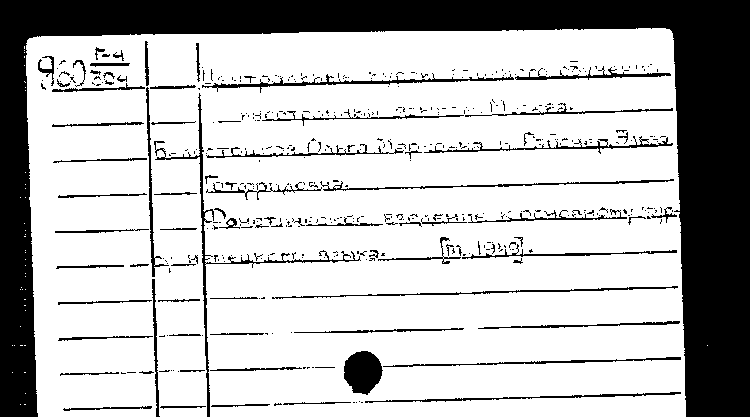 Я60 Г-4/304 Центральные курсы заочного обучения
иностранным языкам. Москва.
Белостоцкая, Ольга Марковна и Райснер, Эльза
Готфридовна.
Фонетическое введение к основному кур-
су немецкого языка. [М., 1949].